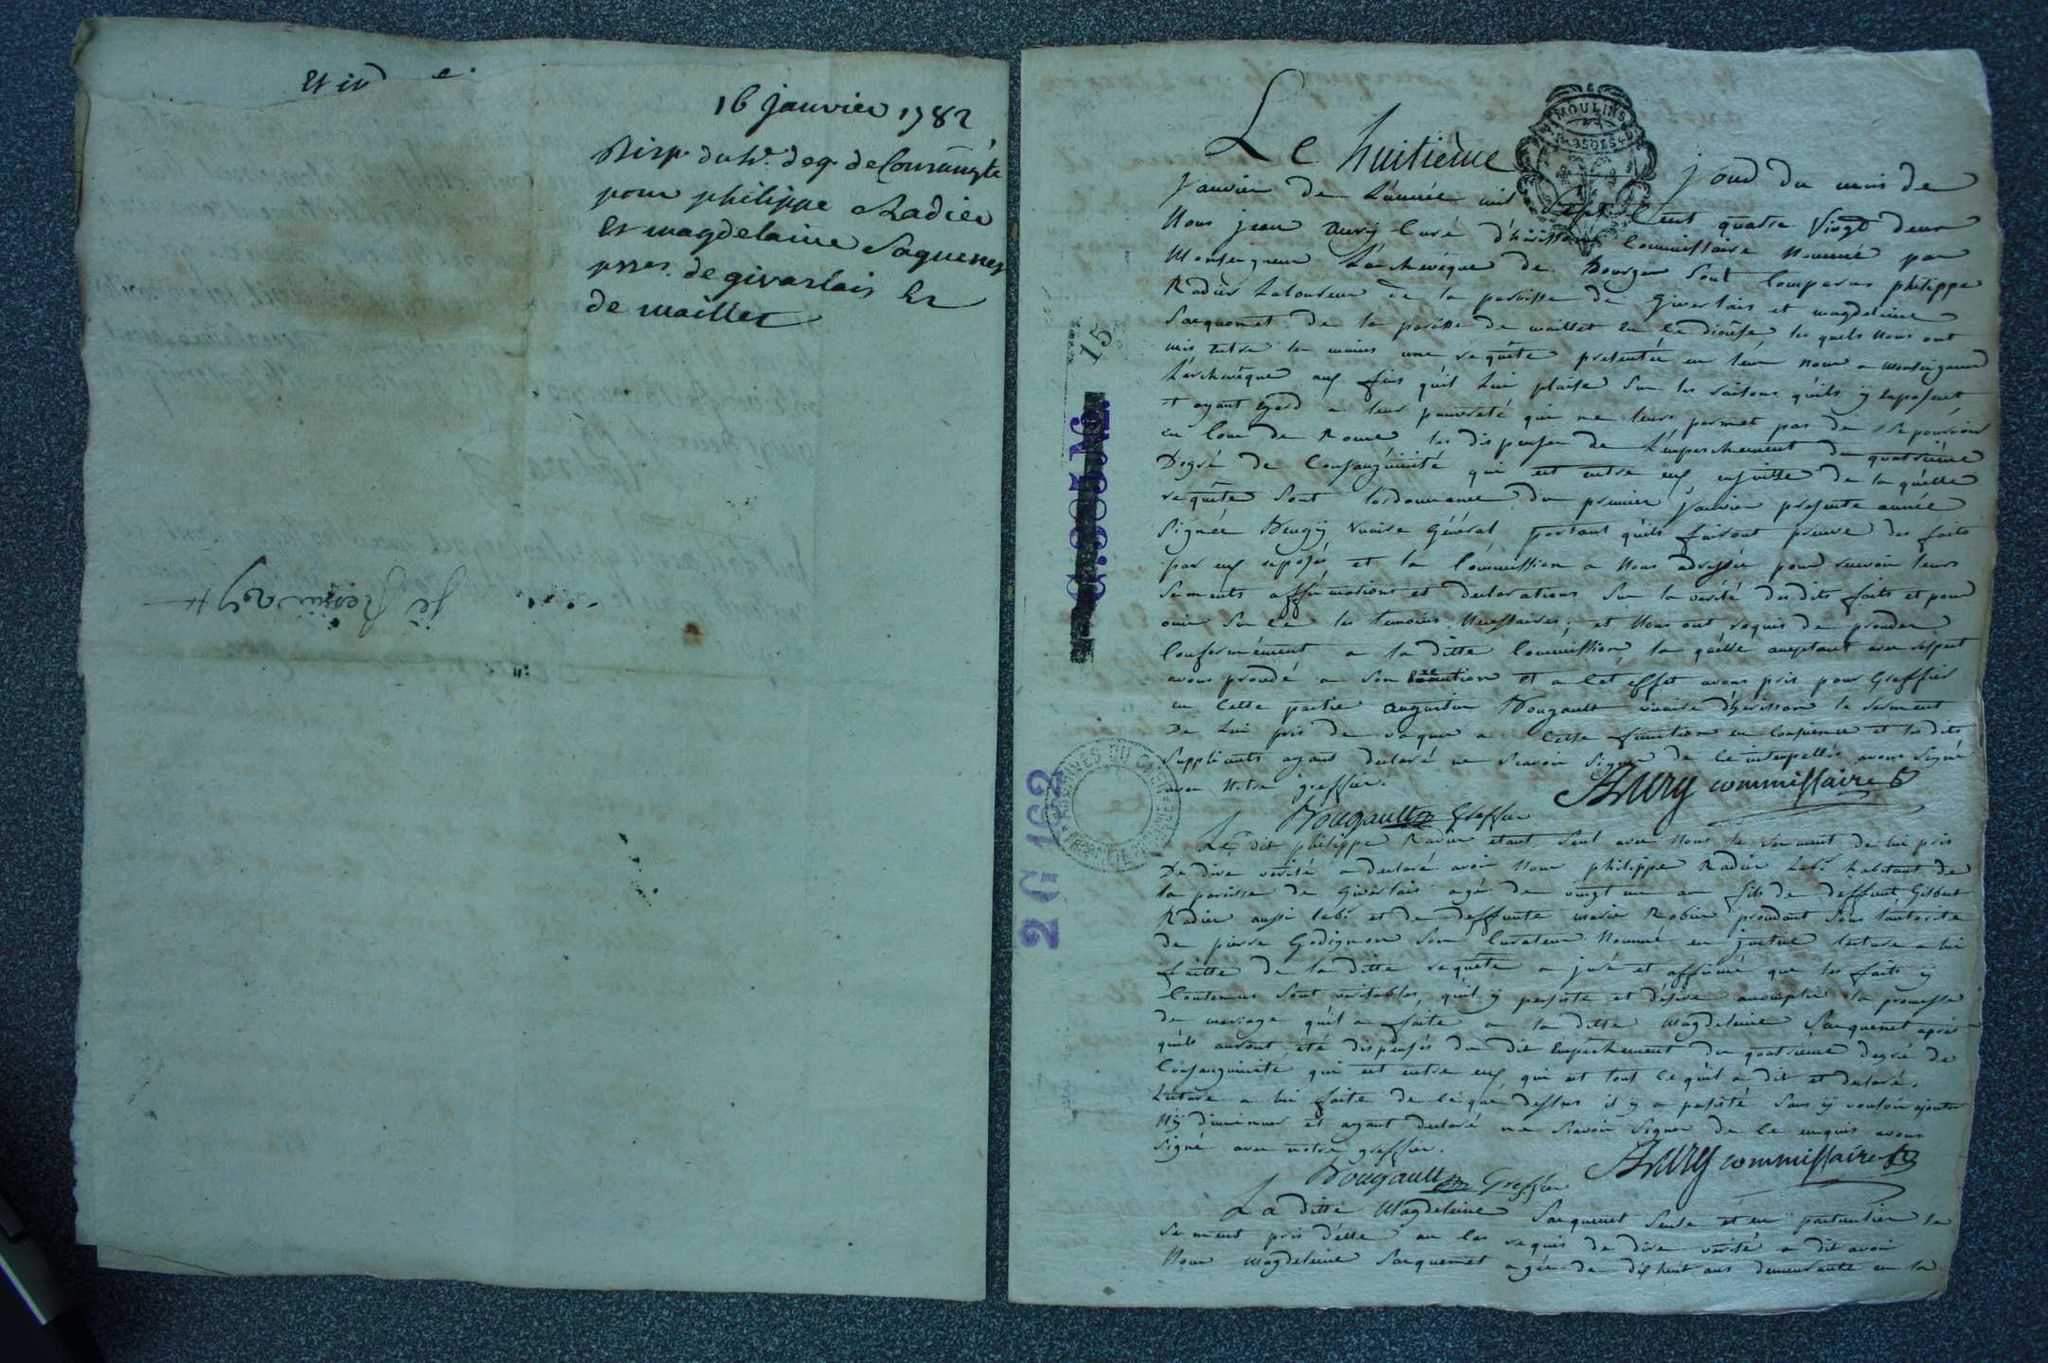 16 janvier 1782
Disp. du 4e. deg. de Consanguité
pour philippe Radier
Et magdelaine Saquenet
psses. de givarlais Et
de maillet
MOULINS
Le huitième jour du mois de
Janvier de L'année mil sept Cent quatre Vingt deux
Nous jean aury Curé d'hérisson Commissaire Nommé par
Monseigneur L'archevêque de Bourges sont Comparus philippe
Radier Laboureur de la paroisse de Givarlais et magdeleine
Saquenet de la paroisse de maillet En Ce diocèse les quels Nous ont
mis Entre les mains une requête presentée en leur nom a monseigneur
L'archevêque aux fins qu'il Lui plaise sur les raisons qu'ils y Exposent
Et ayant Egard a leur pauvreté qui ne leur permet pas de se pourvoir
En Cour de Rome les dispenser de L'empêchement du quatrième
Degré de Consanguinité qui est entre eux ensuitte de la quelle
requête sont l'ordonnance du premier Janvier presente année
Signée Vicaire Général portant qu'ils fairont preuve des faits
par eux exposés et la Commission a Nous adressée pour recevoir leurs
serments affirmations et declarations sur la vérité des dits faits et pour
ouir sur Ce les temoins Necessaires, et Nous ont requis de proceder
Conformément a la ditte Commission la quelle acceptant avec respect
avons procedé a son Execution et a Cet effet avons pris pour Greffier
en Cette partie augustin Bougault vicaire d'hérisson le serment
De Lui pris de vaquer a Cette function en Conscience et les dits
Suppliants ayant declaré ne sçavoir Signer de Ce interpellés avons Signé
avec Notre greffier.
Bougault Greffier Aury commissaire
Le dit philippe Radier étant seul avec Nous le serment de lui pris
De dire vérité a declaré avoir Nom philippe Radier Labr. habitant de
la paroisse de Givarlais agé de vingt un an fils de deffunt Gilbert
Radier aussi labr. et de deffunte marie Robin procedant sous l'autorité
de pierre Godignon son Curateur Nommé en justice lecture a lui
faitte de la ditte requête a juré et affirmé que les faits y
Contenus sont véritables, qu'il y persiste et désire accomplir la promesse
de mariage qu'il a faite a la ditte Magdeleine Saquenet après
qu'ils auront été dispensés du dit Empêchement du quatrième degré de
Consanguinité qui est entre eux qui est tout Ce qu'il a dit et declaré.
Lecture a lui faite de Ce que dessus il y a persisté sans y vouloir ajouter
Ny diminuer et ayant declaré ne sçavoir signer de Ce enquis avons
signé avec notre greffier.
Bougault Greffier Aury commissaire
La ditte Magdeleine Saquenet seule et en particulier le
serment pris d'elle au Cas requis de dire vérité a dit avoir
Nom Magdeleine Saquenet agée de dix huit ans demeurante en la
15
C. 985 N°.
2 G 162
ARCHIVES DU CHER